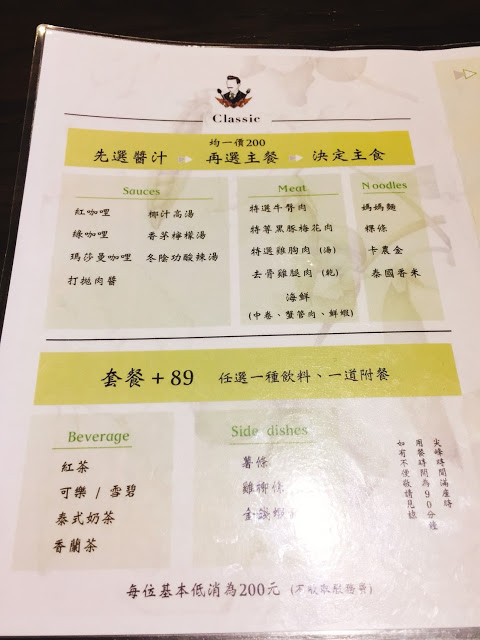 Classic
均一價200
先選醬汁 再選主餐 決定主食
Sauces
紅咖哩 椰汁高湯
綠咖哩 香茅檸檬湯
瑪莎曼咖哩 冬陰功酸辣湯
打拋肉醬
Meat
特選牛臀肉
特等黑豚梅花肉
特選雞胸肉 (湯)
去骨雞腿肉 (乾)
海鮮
(中卷、蟹管肉、鮮蝦)
Noodles
媽媽麵
粿條
卡農金
泰國香米
套餐 + 89 任選一種飲料、一道附餐
Beverage
紅茶
可樂 / 雪碧
泰式奶茶
香蘭茶
Side dishes
薯條
雞柳條
金錢蝦
尖峰時間滿座時
用餐時間為90分鐘
如有不便敬請見諒
每位基本低消為200元 (不收取服務費)